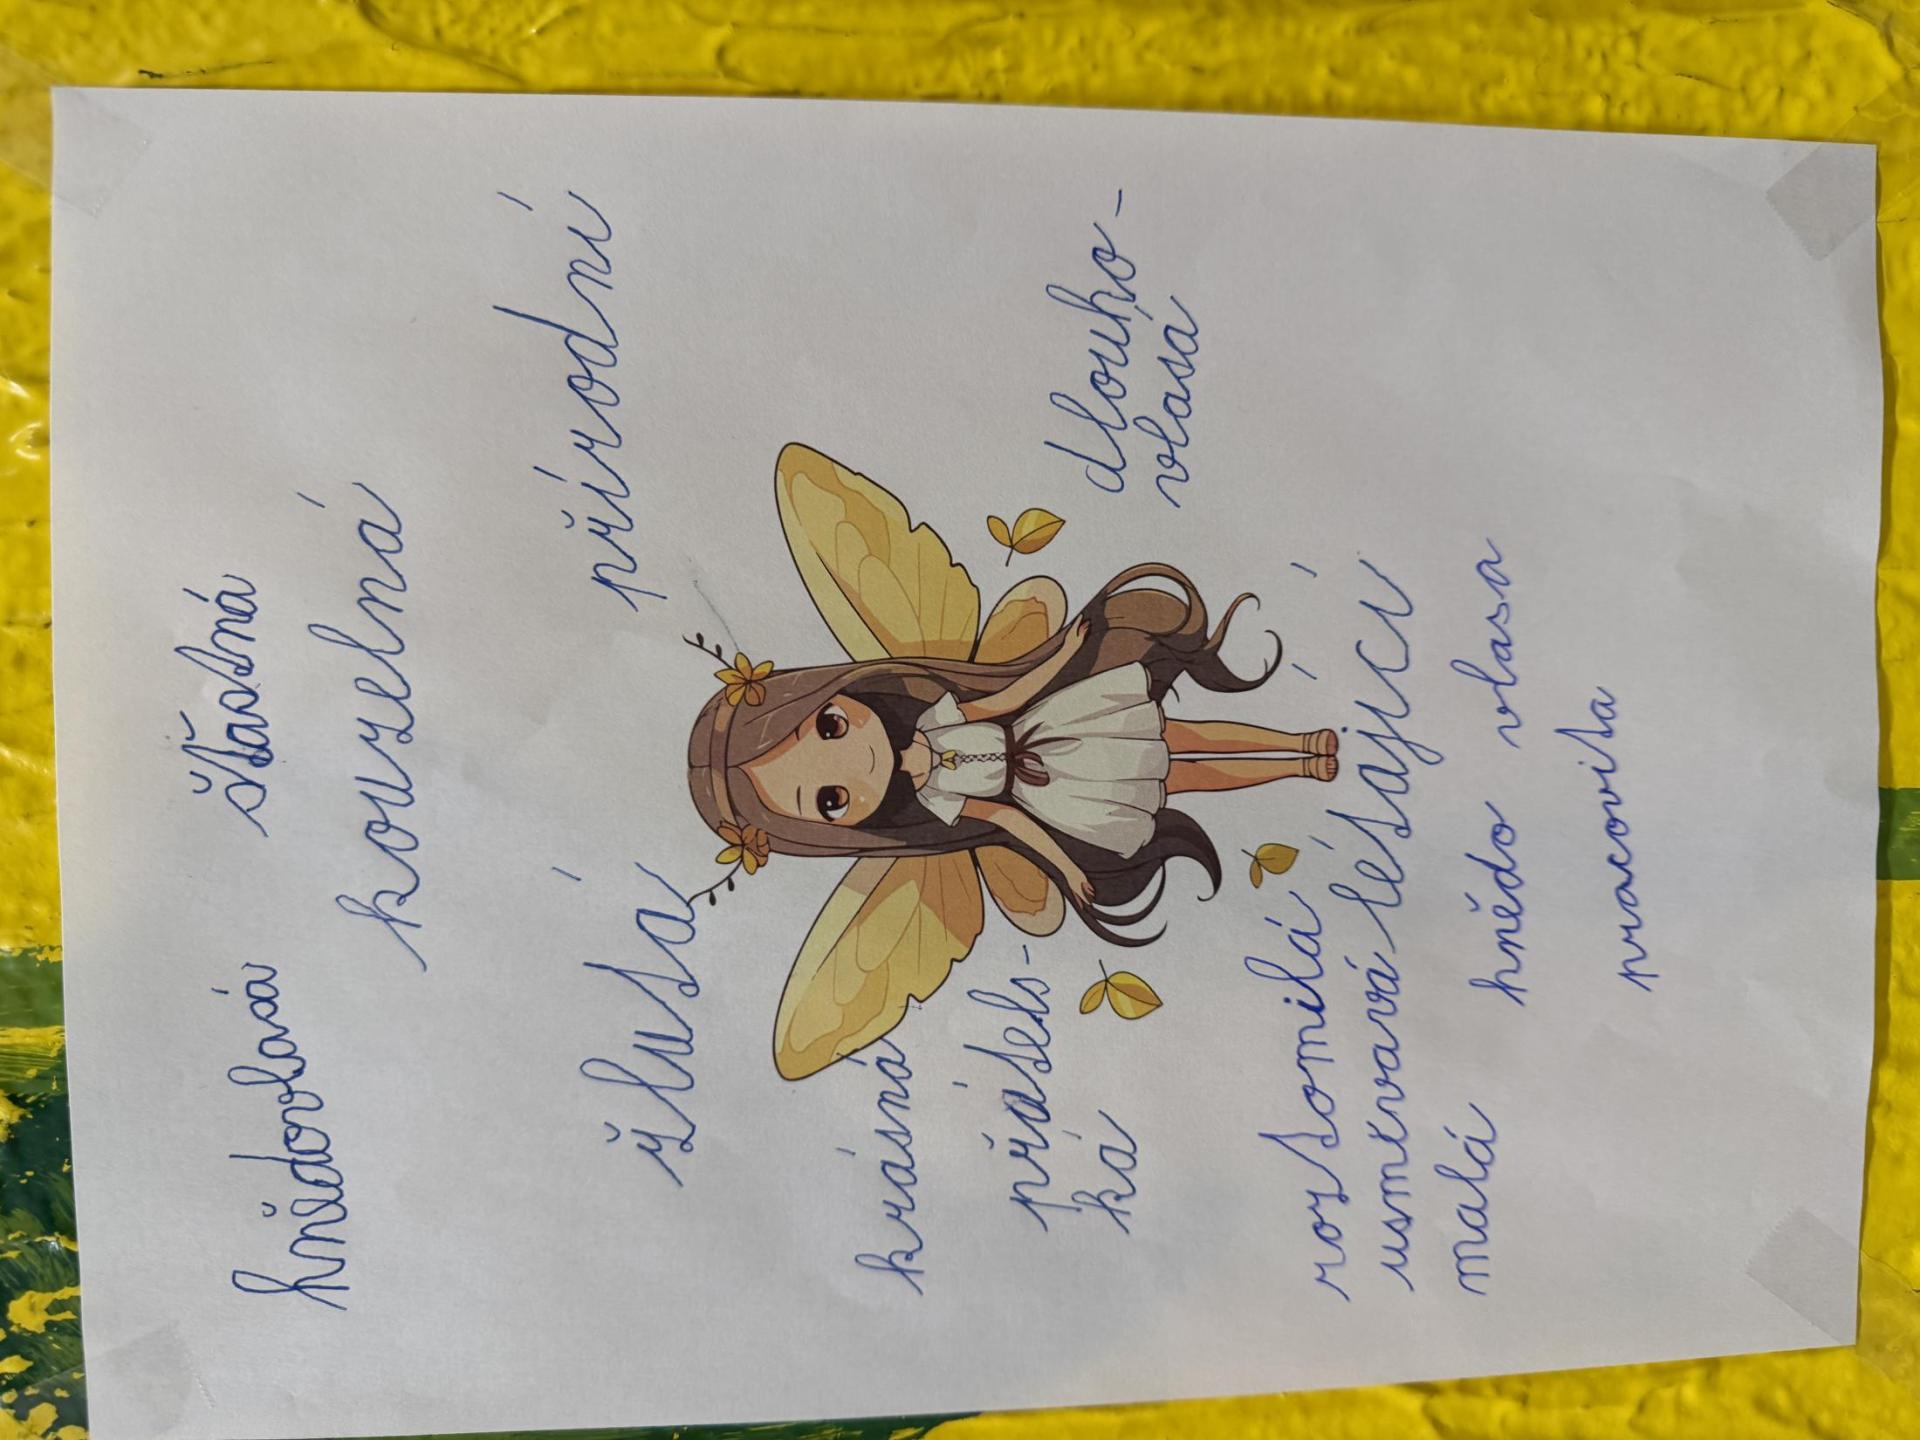 hnědovlasá šťastná
kouzelná
žlutá přírodní
krásná
přátels-
ká
dlouho-
vlasá
roztomilá
usměvavá létající
malá hnědo vlasa
pracovita